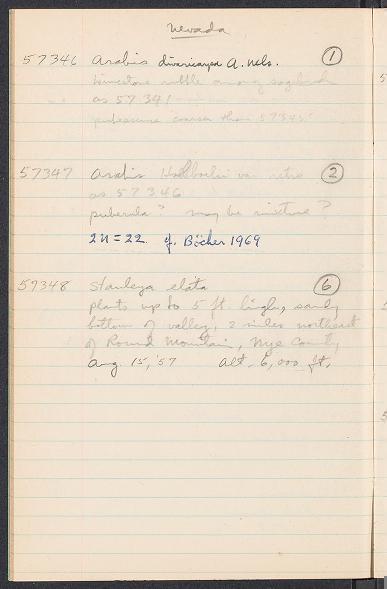 Nevada
57346 Arabis divaricarpa A. Nels. 1
limestone rubble among sagebrush
as 57341
pubescence coarser than 57345!
57347 Arabis Holboelii var retro 2
as 57346
puberula? may be mixture?
2n=22. cf. Böcher 1969
57348 Stanleya elata 6
plants up to 5 ft. high, sandy
bottom of valley, 2 miles northeast
of Round Mountain, Nye County
Aug. 15, '57 alt. 6,000 ft.